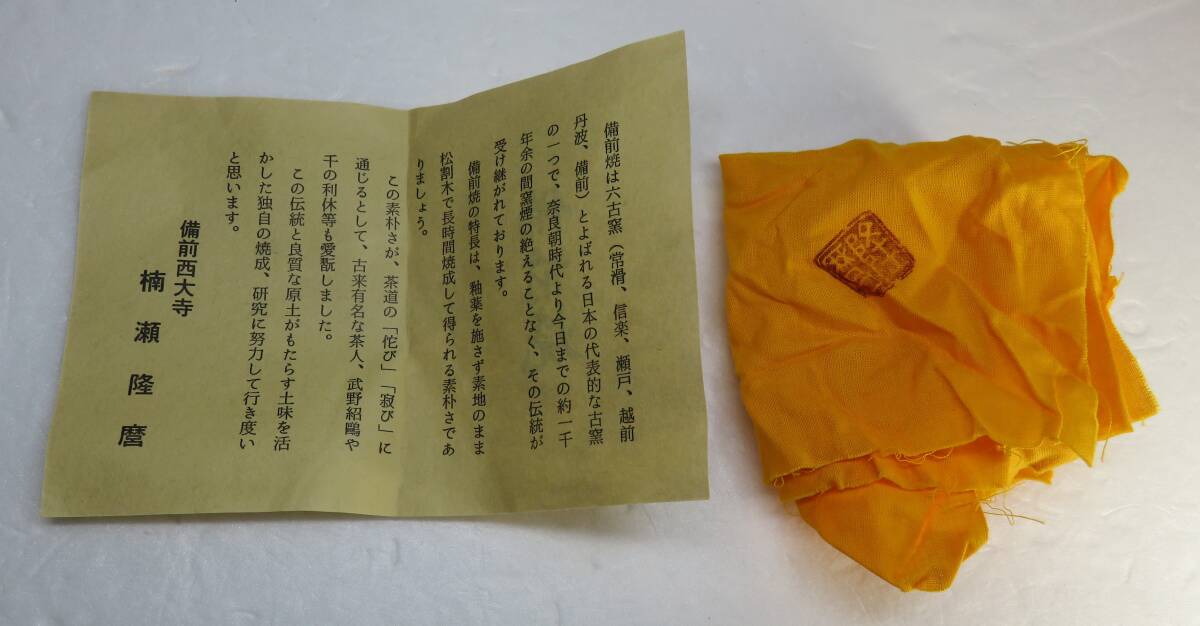 備前焼は六古窯（常滑、信楽、瀬戸、越前
丹波、備前）とよばれる日本の代表的な古窯
の一つで、奈良朝時代より今日までの約一千
年余の間窯煙の絶えることなく、その伝統が
受け継がれております。
備前焼の特長は、釉薬を施さず素地のまま
松割木で長時間焼成して得られる素朴さであ
りましょう。
この素朴さが、茶道の「侘び」「寂び」に
通じるとして、古来有名な茶人、武野紹鷗や
千の利休等も愛翫しました。
この伝統と良質な原土がもたらす土味を活
かした独自の焼成、研究に努力して行き度い
と思います。
備前西大寺
楠瀬隆麿